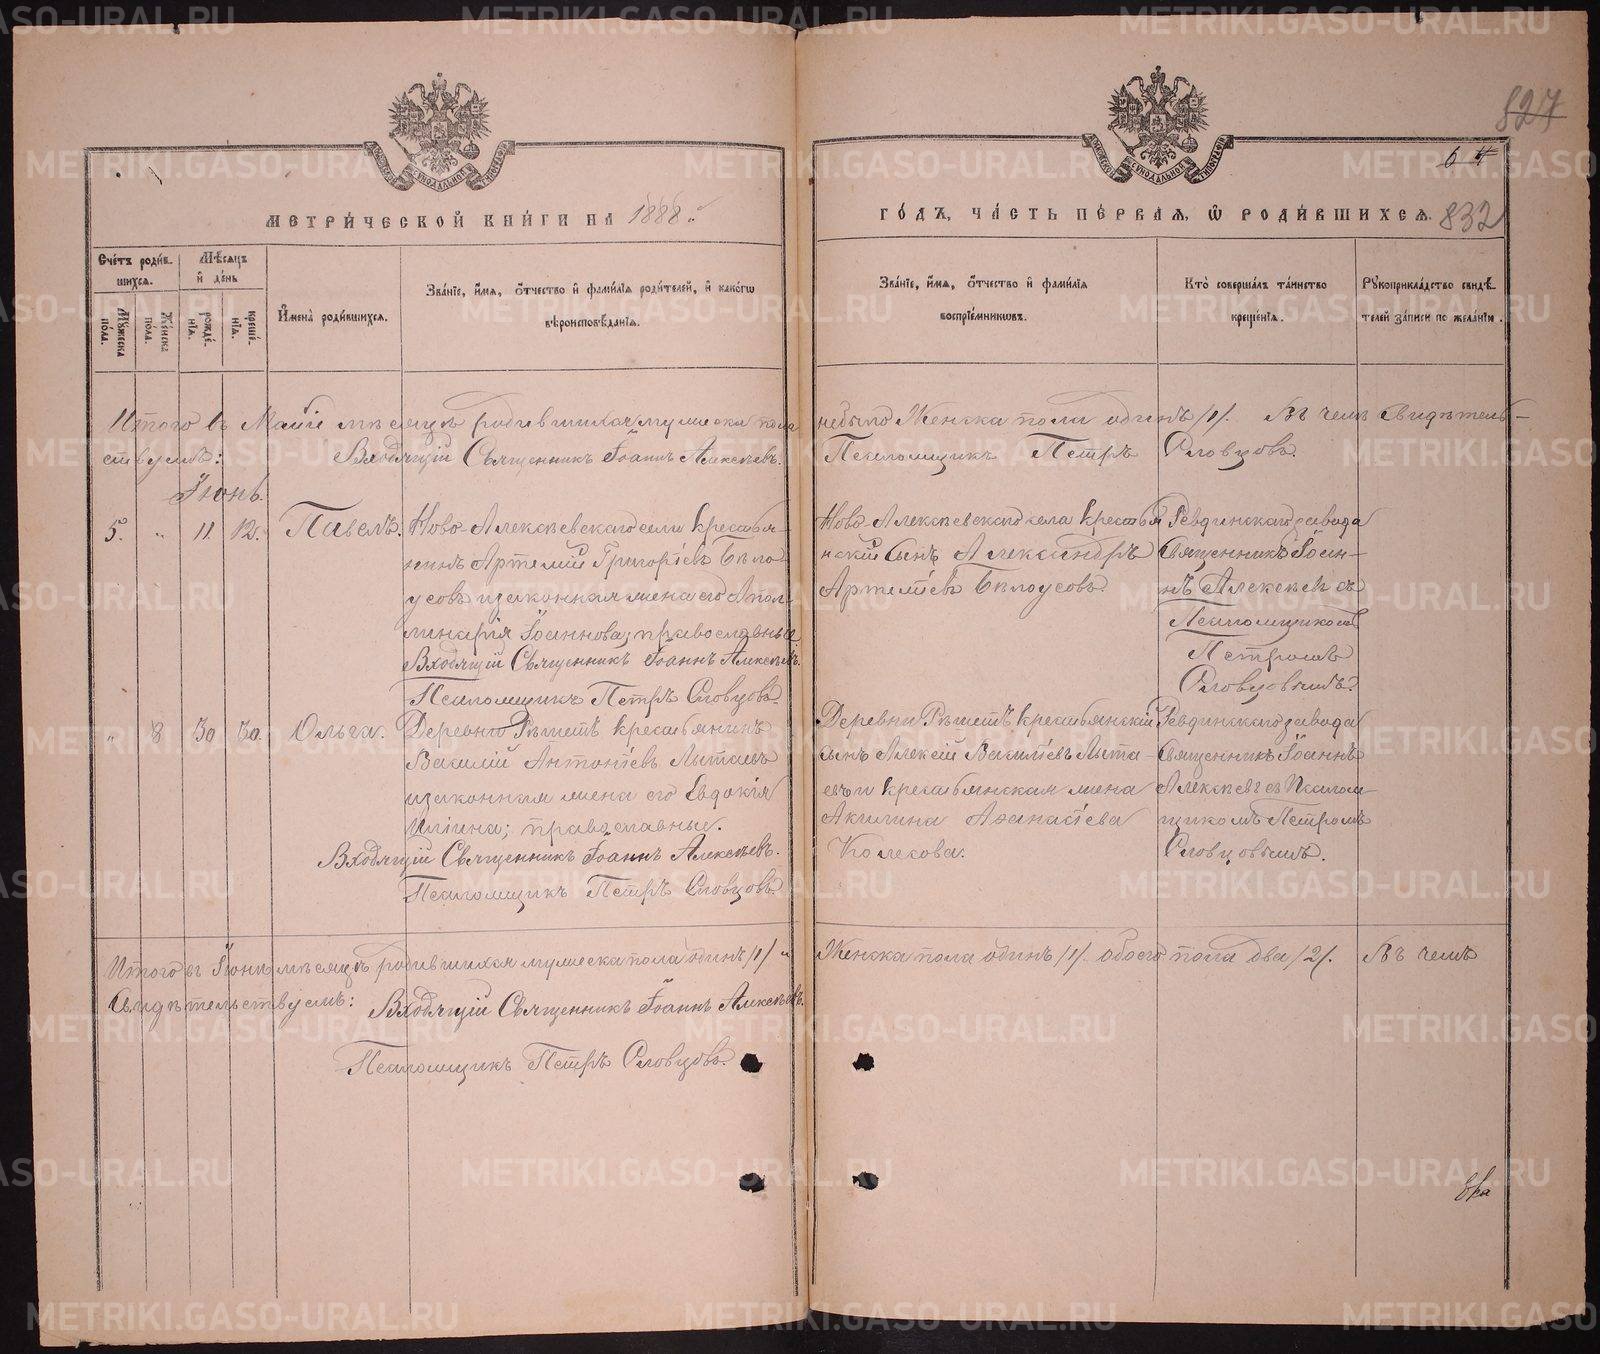 827
6 4
МЕТРИЧЕСКОЙ КНИГИ НА 1888.
ГОДЪ, ЧАСТЬ ПЕРВАЯ, Ѡ РОДИВШИХСЯ. 832
Счетъ родив-
шихся.
Мѣсяцъ
и день
Мужеска пола.
Женска пола.
рожденія.
крещенія.
Имена родившихся.
Званіе, имя, отчество и фамилія родителей, и какогѡ
вѣроисповѣданія.
Званіе, имя, отчество и фамилія
воспріемниковъ.
Кто совершалъ таинство
крещенія.
Рукоприкладство свидѣ-
телей записи по желанію.
Итого въ Маіи мѣсяцѣ родившихся мужеска пола
ствуемъ: Входящій Священникъ Іоаннъ Алексѣевъ.
небыло Женска пола одинъ /1/. Въ чемъ Свидѣтель-
Псаломщикъ Петръ Словцовъ.
Іюнь.
5. " 11. 12. Павелъ.
Ново-Алексѣевскаго села кресть-
нинъ Артемій Григоріевъ Бѣло
усовъ и законная жена его Апол-
линарія Іоаннова; православные
Входящій Священникъ Іоаннъ Алексѣевъ.
Псаломщикъ Петръ Словцовъ.
Ново-Алексѣевскаго села крестья
нскій сынъ Александръ
Артеміевъ Бѣлоусовъ.
Ревдинскаго завода
Священникъ Іоан-
нъ Алексѣевъ съ
Псаломщикомъ
Петромъ
Словцовымъ.
" 8 30 30. Ольга.
Деревни Рѣшетъ крестьянинъ
Василій Антоніевъ Лытаевъ
и законная жена его Евдокія
Иліина; православные.
Входящій Священникъ Іоаннъ Алексѣевъ.
Псаломщикъ Петръ Словцовъ
Деревни Рѣшетъ крестьянскій
сынъ Алексій Василіевъ Лыта-
евъ и крестьянская жена
Акилина Аѳанасіева
Колекова.
Ревдинскаго завода
Священникъ Іоаннъ
Алексѣевъ съ Псалом-
щикомъ Петромъ
Словцовымъ.
Итого въ Іюнѣ мѣсяцѣ родившихся мужеска пола одинъ /1/ "
Свидѣтельствуемъ: Входящій Священникъ Іоаннъ Алексѣевъ.
Псаломщикъ Петръ Словцовъ.
Женска пола одинъ /1/. обоего пола два /2/. Въ чемъ